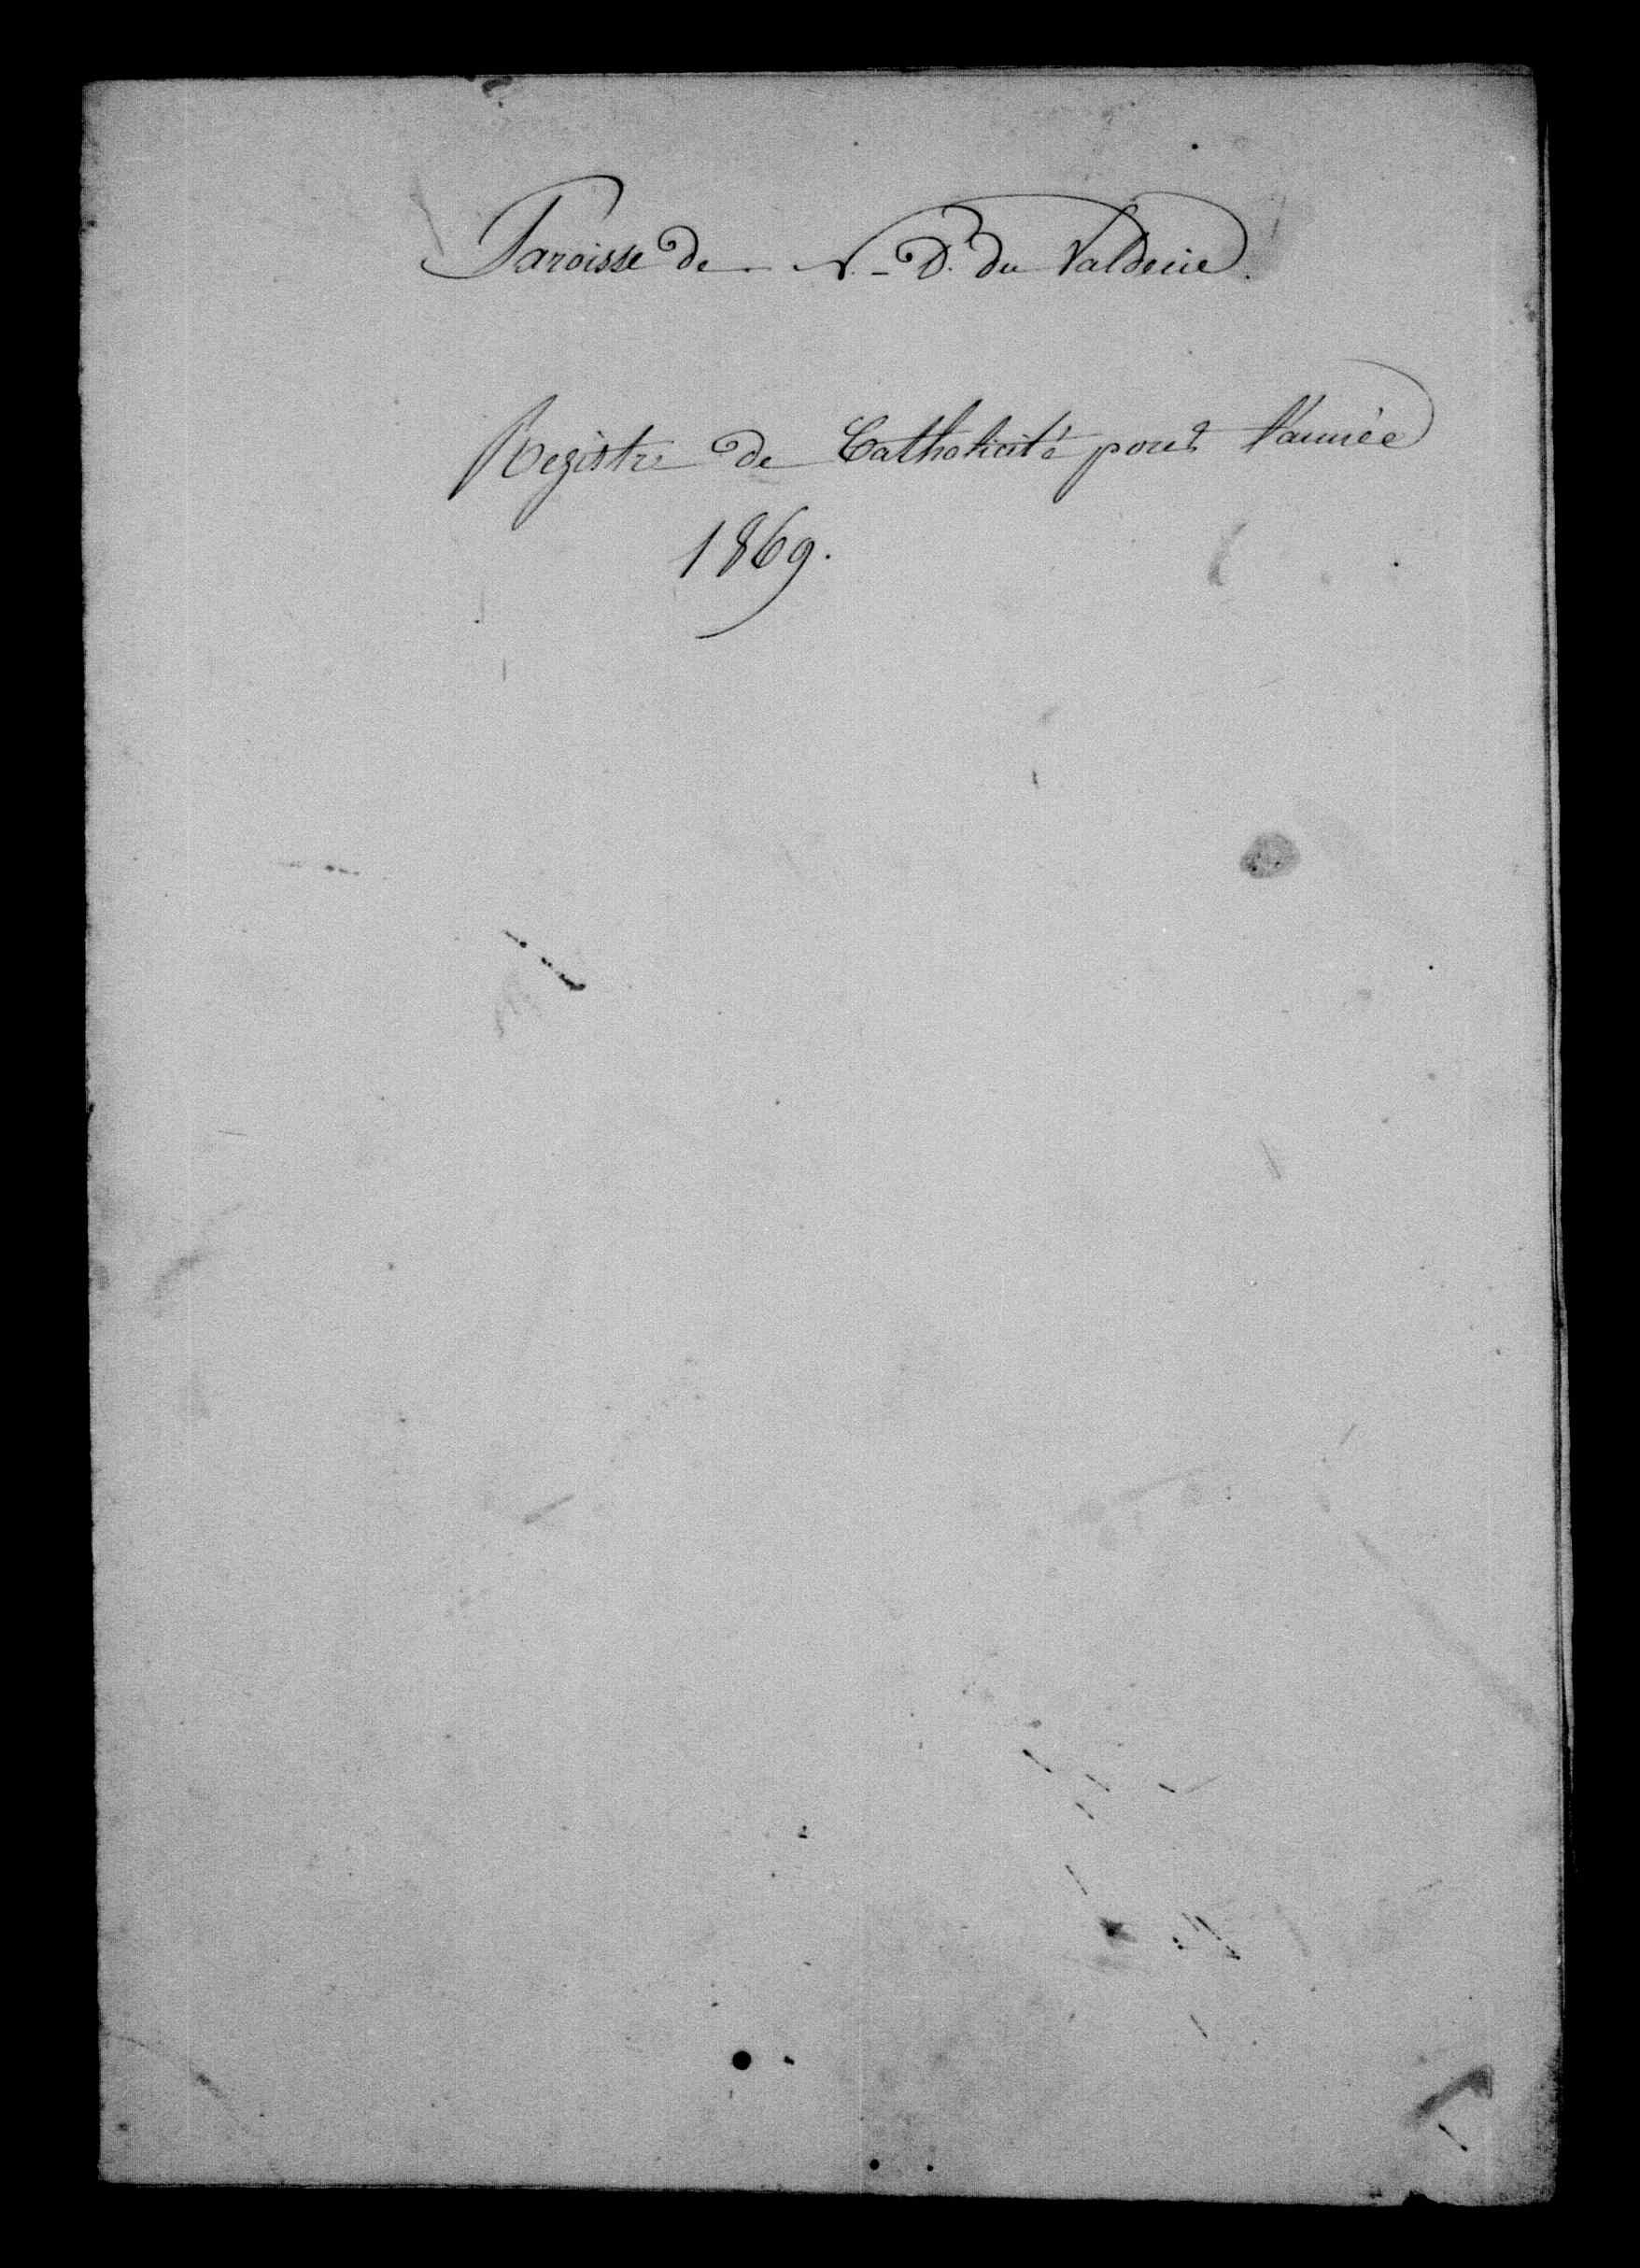 Paroisse de N.-D. du Valdocie.
Registre de Catholicité pour l'année
1869.